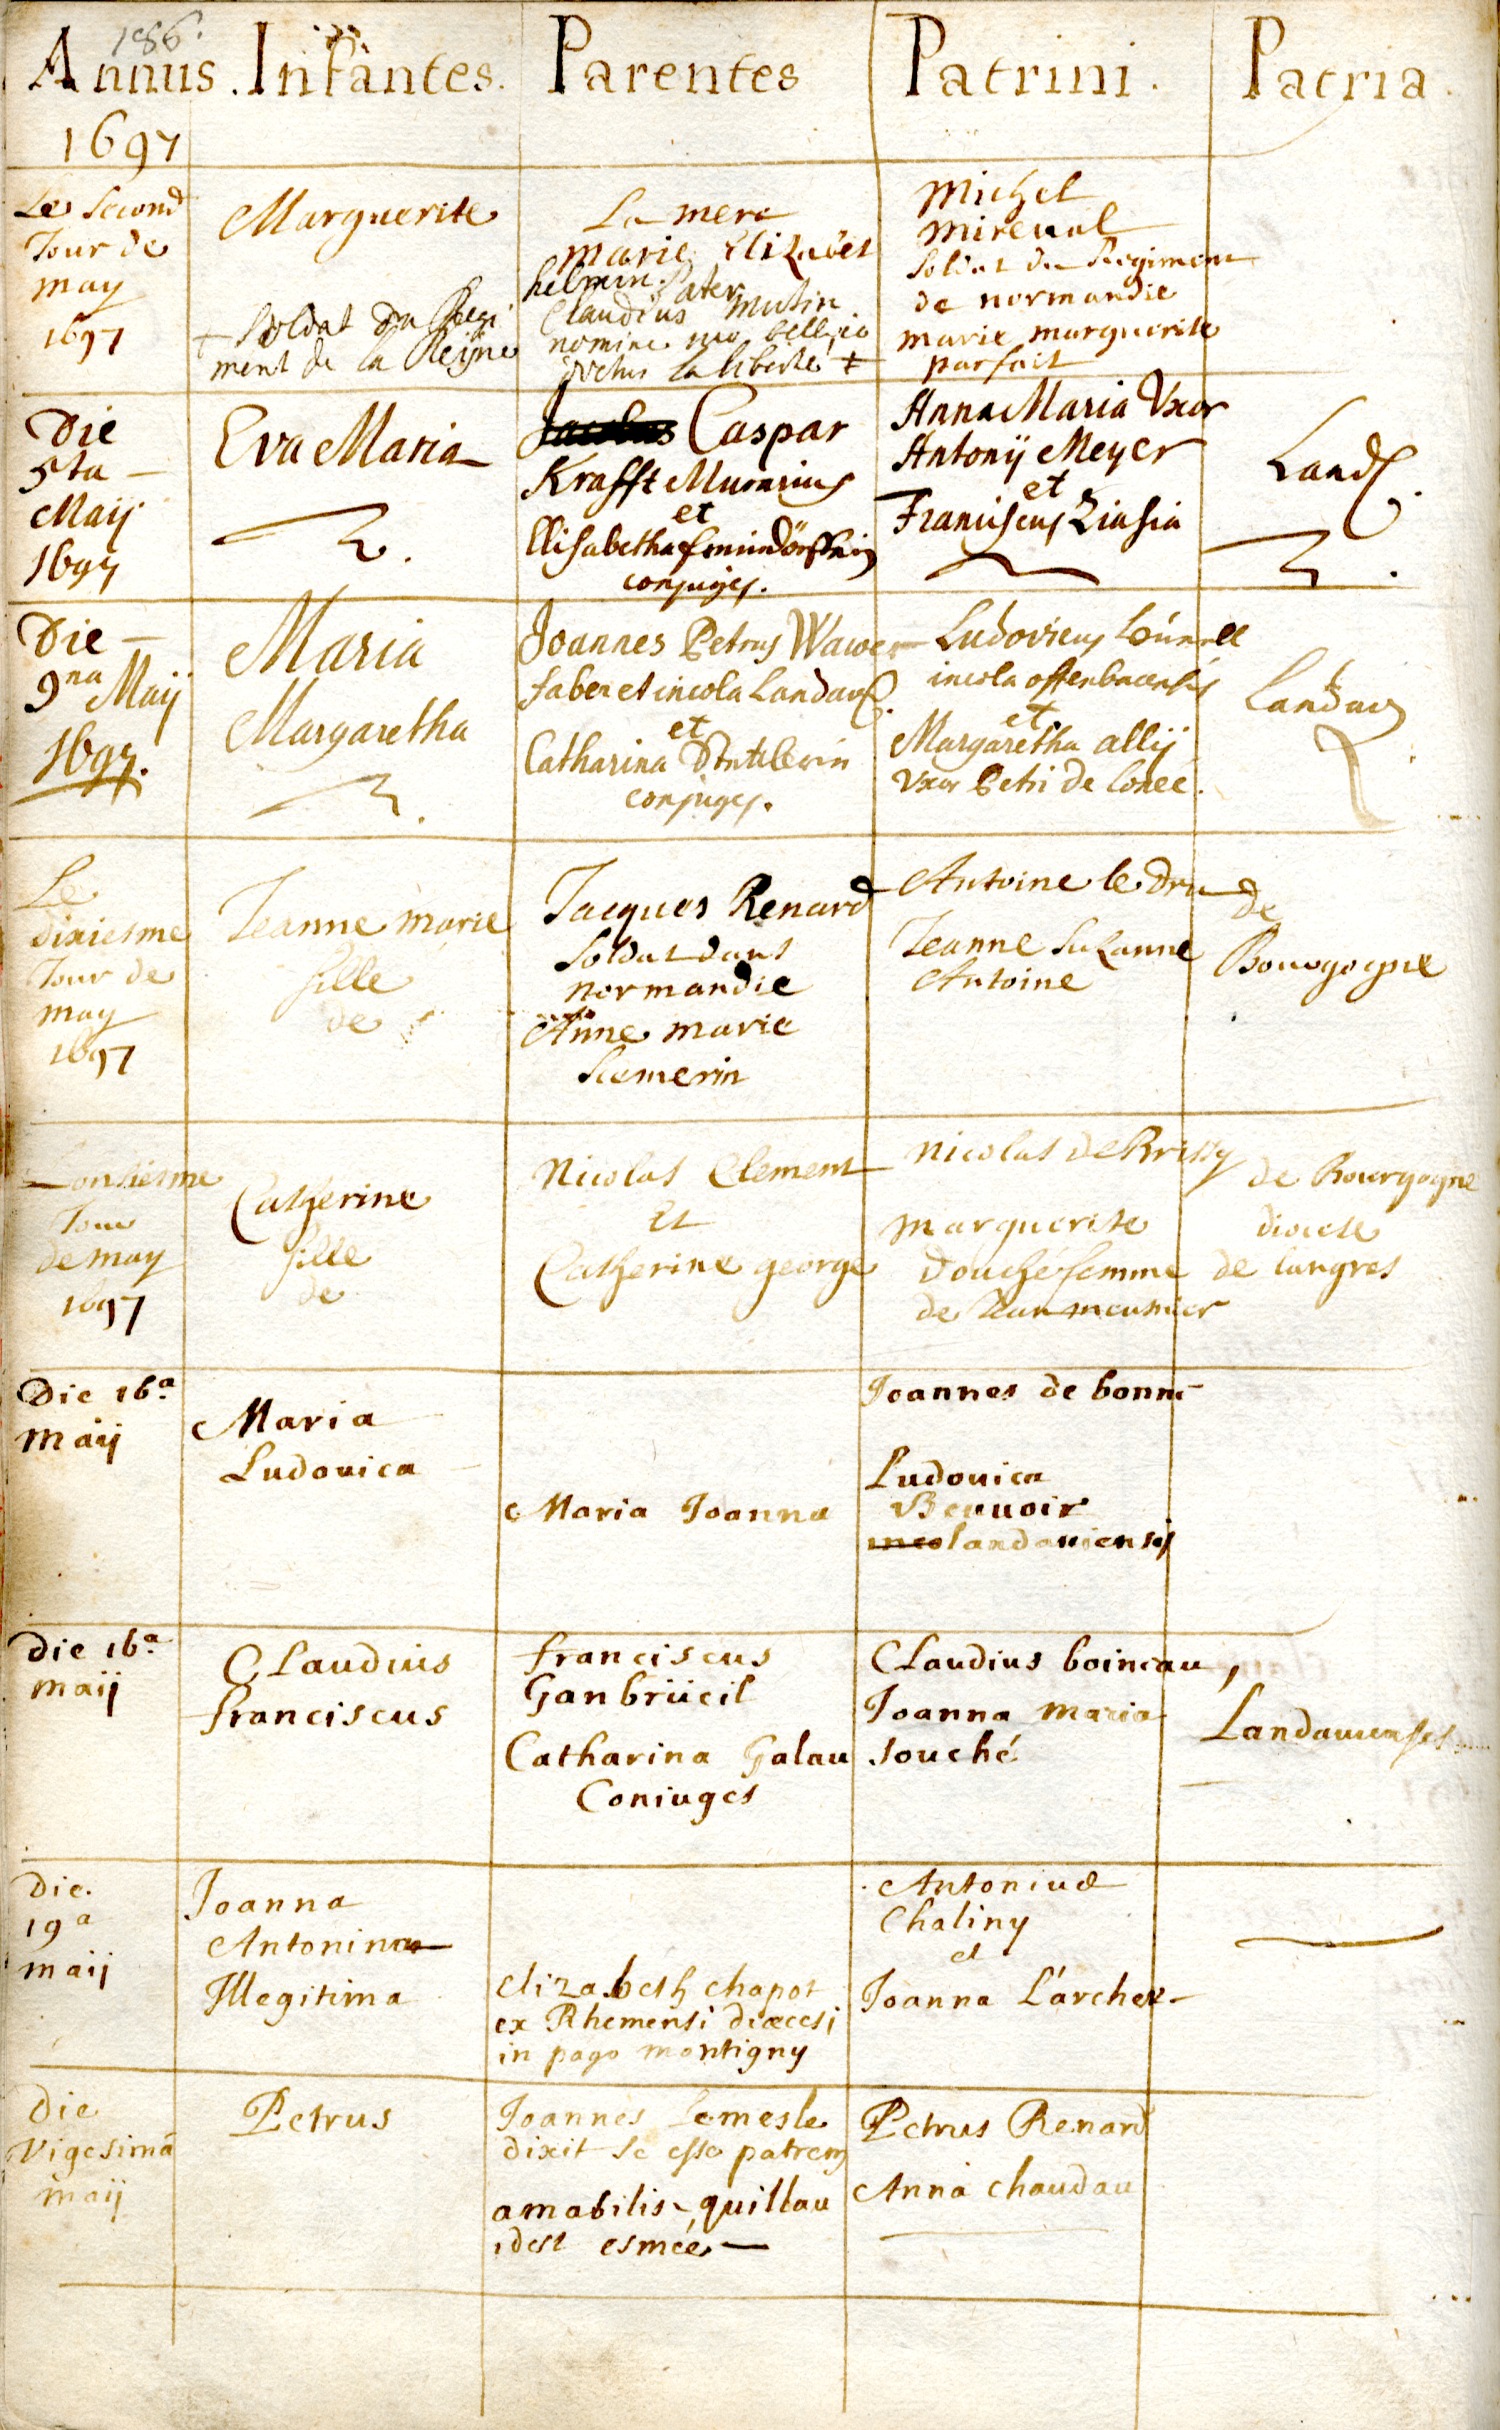 186.
Annus. Infantes. Parentes Patrini. Patria.
1697
Le second
Jour de
may
1697
Marguerite
+ Soldat du Regi
ment de la Reijne
La mere
marie Elizabet
helmin. Pater
Claudius Mutin
nomine suo bellico
dictus la liberté +
Michel
mireval
soldat du Regiment
de normandie
marie marguerite
parfait
Die
5ta
Maij
1697
Eva Maria
Caspar
Krafft Murarius
et
Elisabetha
conjuges.
Anna Maria Uxor
Antonij Meyer
et
Franciscus Ziasia
Land.
Die
9na Maij
1697.
Maria
Margaretha
Joannes Petrus Wawer
faber et incola Landav.
et
Catharina
conjuges.
Ludovicus
incola offenbacensis
et
Margaretha allij
Uxor Petri de Coneé.
Landav
Le
dixiesme
Jour de
may
1697
Jeanne marie
fille
de
Jacques Renard
soldat dans
normandie
Anne marie
Stemerin
Antoine le dru
Jeanne Suzanne
Antoine
de
Bourgogne
Lonsiesme
Jour
de may
1697
Catherine
fille
de
Nicolas Clement
Et
Catherine george
Nicolas de Brissy
marguerite
Douché femme
de Jean meusnier
de Bourgogne
diocese
de langres
Die 16a
Maij
Maria
Ludovica
Maria Joanna
Joannes de bonne
Ludovica
Beauvoir
landaviensis
Die 16a
maij
Claudius
franciscus
franciscus
Ganbrücil
Catharina Galau
Coniuges
Claudius boineau,
Joanna maria
souché
Landavienses
Die.
19a
maij
Joanna
Antonina
Illegitima
Elizabeth chapot
ex Rhemensi diœcesi
in pago montigny
Antonius
Chaliny
et
Joanna L'archer
Die
Vigesima
maij
Petrus
Joannes Lemesle
dixit se esse patrem
amabilis quillau
idest esmée
Petrus Renard
Anna chaudau